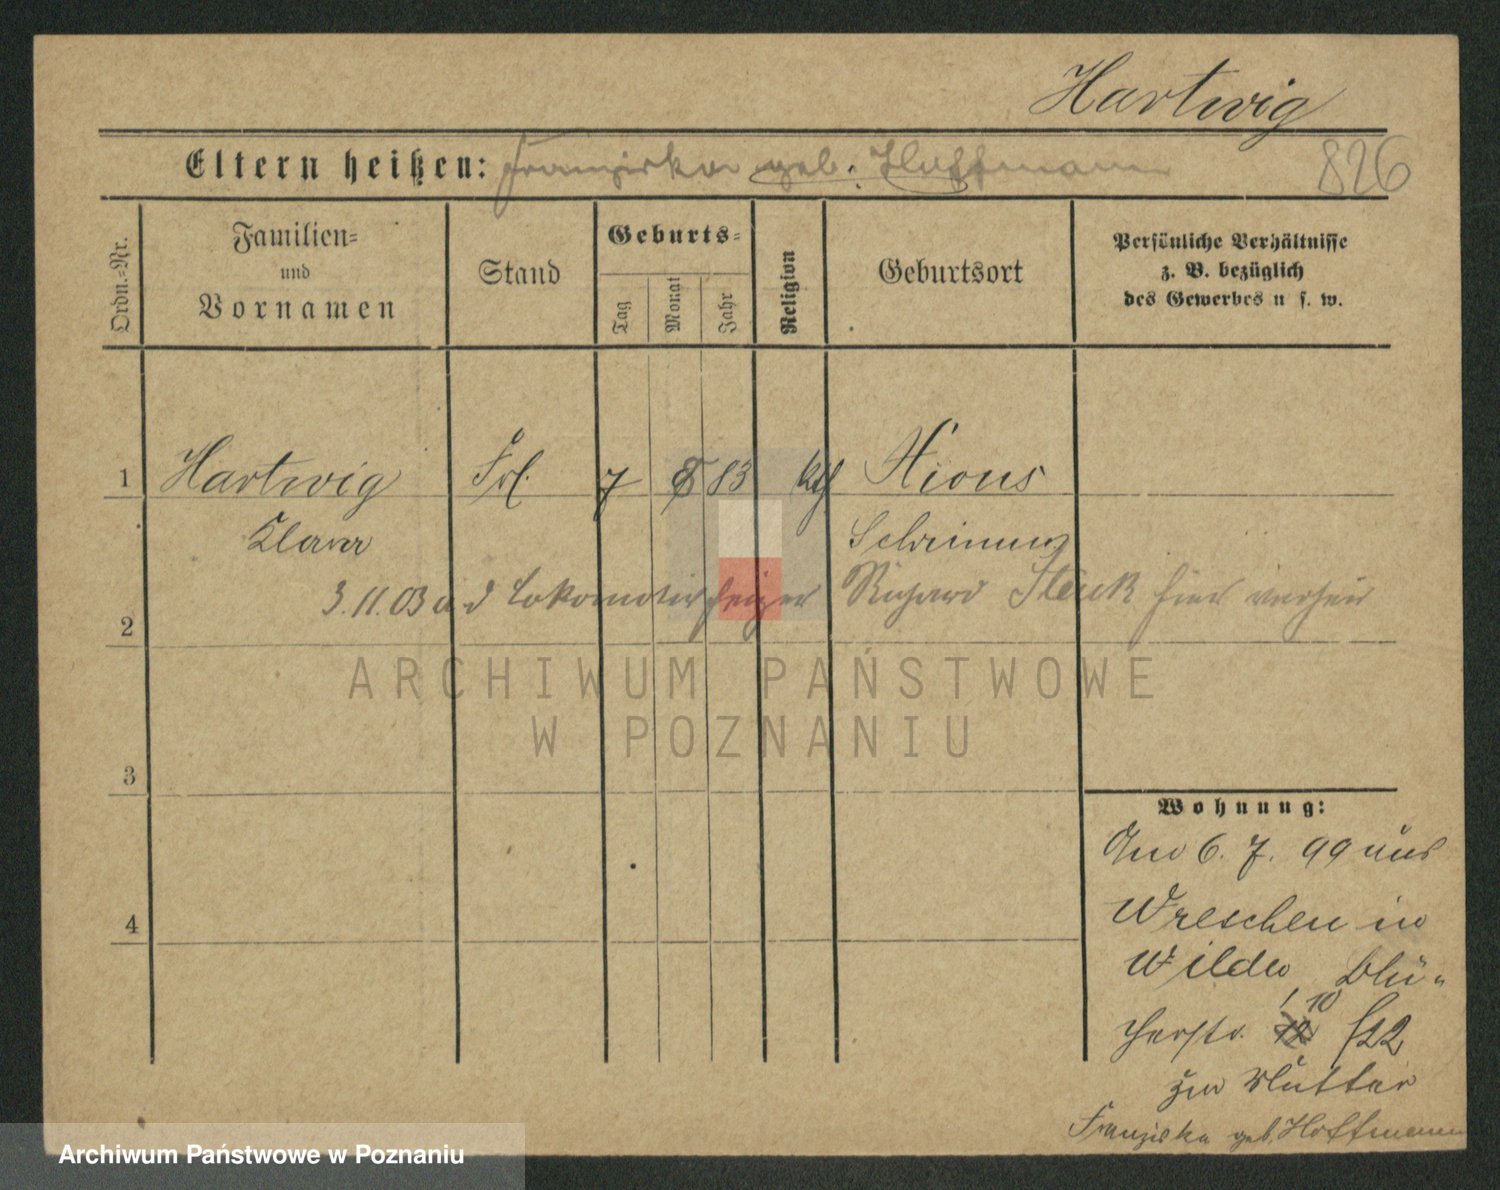 Hartwig
Eltern heißen: Franziska geb. Hoffmann 826
Ordn.-Nr.
Familien-
und
Vornamen
Stand
Geburts-
Tag
Monat
Jahr
Religion
Geburtsort
Persönliche Verhältnisse
z. B. bezüglich
des Gewerbes u. s. w.
1 Hartwig Frl. 7 8 83 kth Xions
Klara Schrimm
3.11.03 a d Lokomotivheizer Richard hier verheir
2
3
4
Wohnung:
Am 6. 7. 99 aus
Wreschen in
Wilda Blü-
cherstr. 10
zur Mutter
Franziska geb. Hoffmann
ARCHIWUM PAŃSTWOWE
W POZNANIU
Archiwum Państwowe w Poznaniu